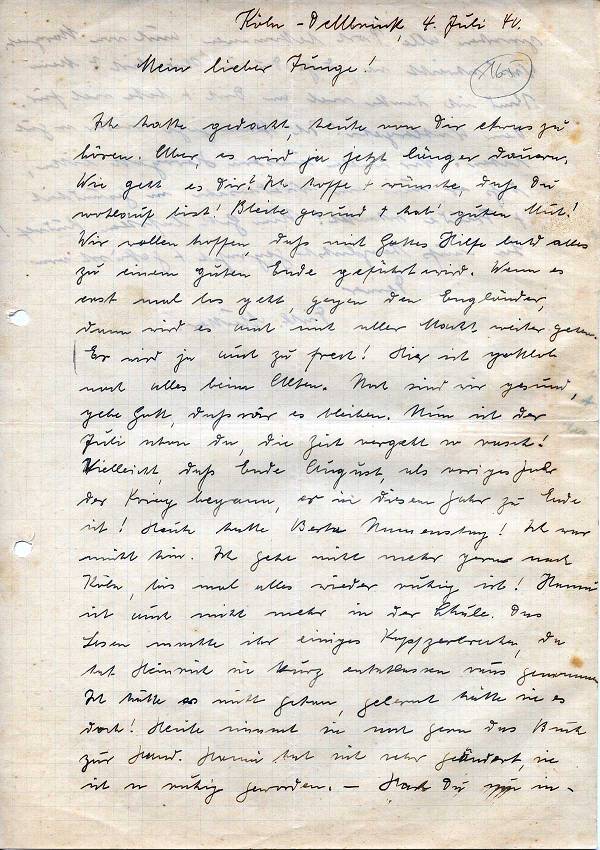 Köln-Dellbrück, 4. Juli 40.
160
Mein lieber Junge!
Ich hatte gedacht, heute von Dir etwas zu
hören. Aber, es wird ja jetzt länger dauern.
Wie geht es Dir? Ich hoffe + wünsche, daß Du
wohlauf bist! Bleibe gesund + hab' guten Mut!
Wir wollen hoffen, daß mit Gottes Hilfe bald alles
zu einem guten Ende geführt wird. Wenn es
erst mal los geht gegen den Engländer,
dann wird es auch mit aller Macht weiter gehen.
Er wird ja auch zu frech! Hier ist gottlob
noch alles beim Alten. Noch sind wir gesund,
gebe Gott, daß wir es bleiben. Nun ist der
Juli schon da, die Zeit vergeht so rasch!
Vielleicht, daß Ende August, als voriges Jahr
der Krieg begann, er in diesem Jahr zu Ende
ist! Heute hatte Berta Namenstag! Ich war
nicht hin. Ich gehe nicht mehr gern nach
Köln, bis mal alles wieder ruhig ist! Hanni
ist auch nicht mehr in der Schule. Das
Lesen machte ihr einiges Kopfzerbrechen, da
hat Heinrich sie kurz entschlossen raus genommen
Ich hätte es nicht getan, gelernt hätte sie es
doch! Heute nimmt sie noch gern das Buch
zur Hand. Hanni hat sich sehr geändert, sie
ist so ruhig geworden. — Hast Du in-